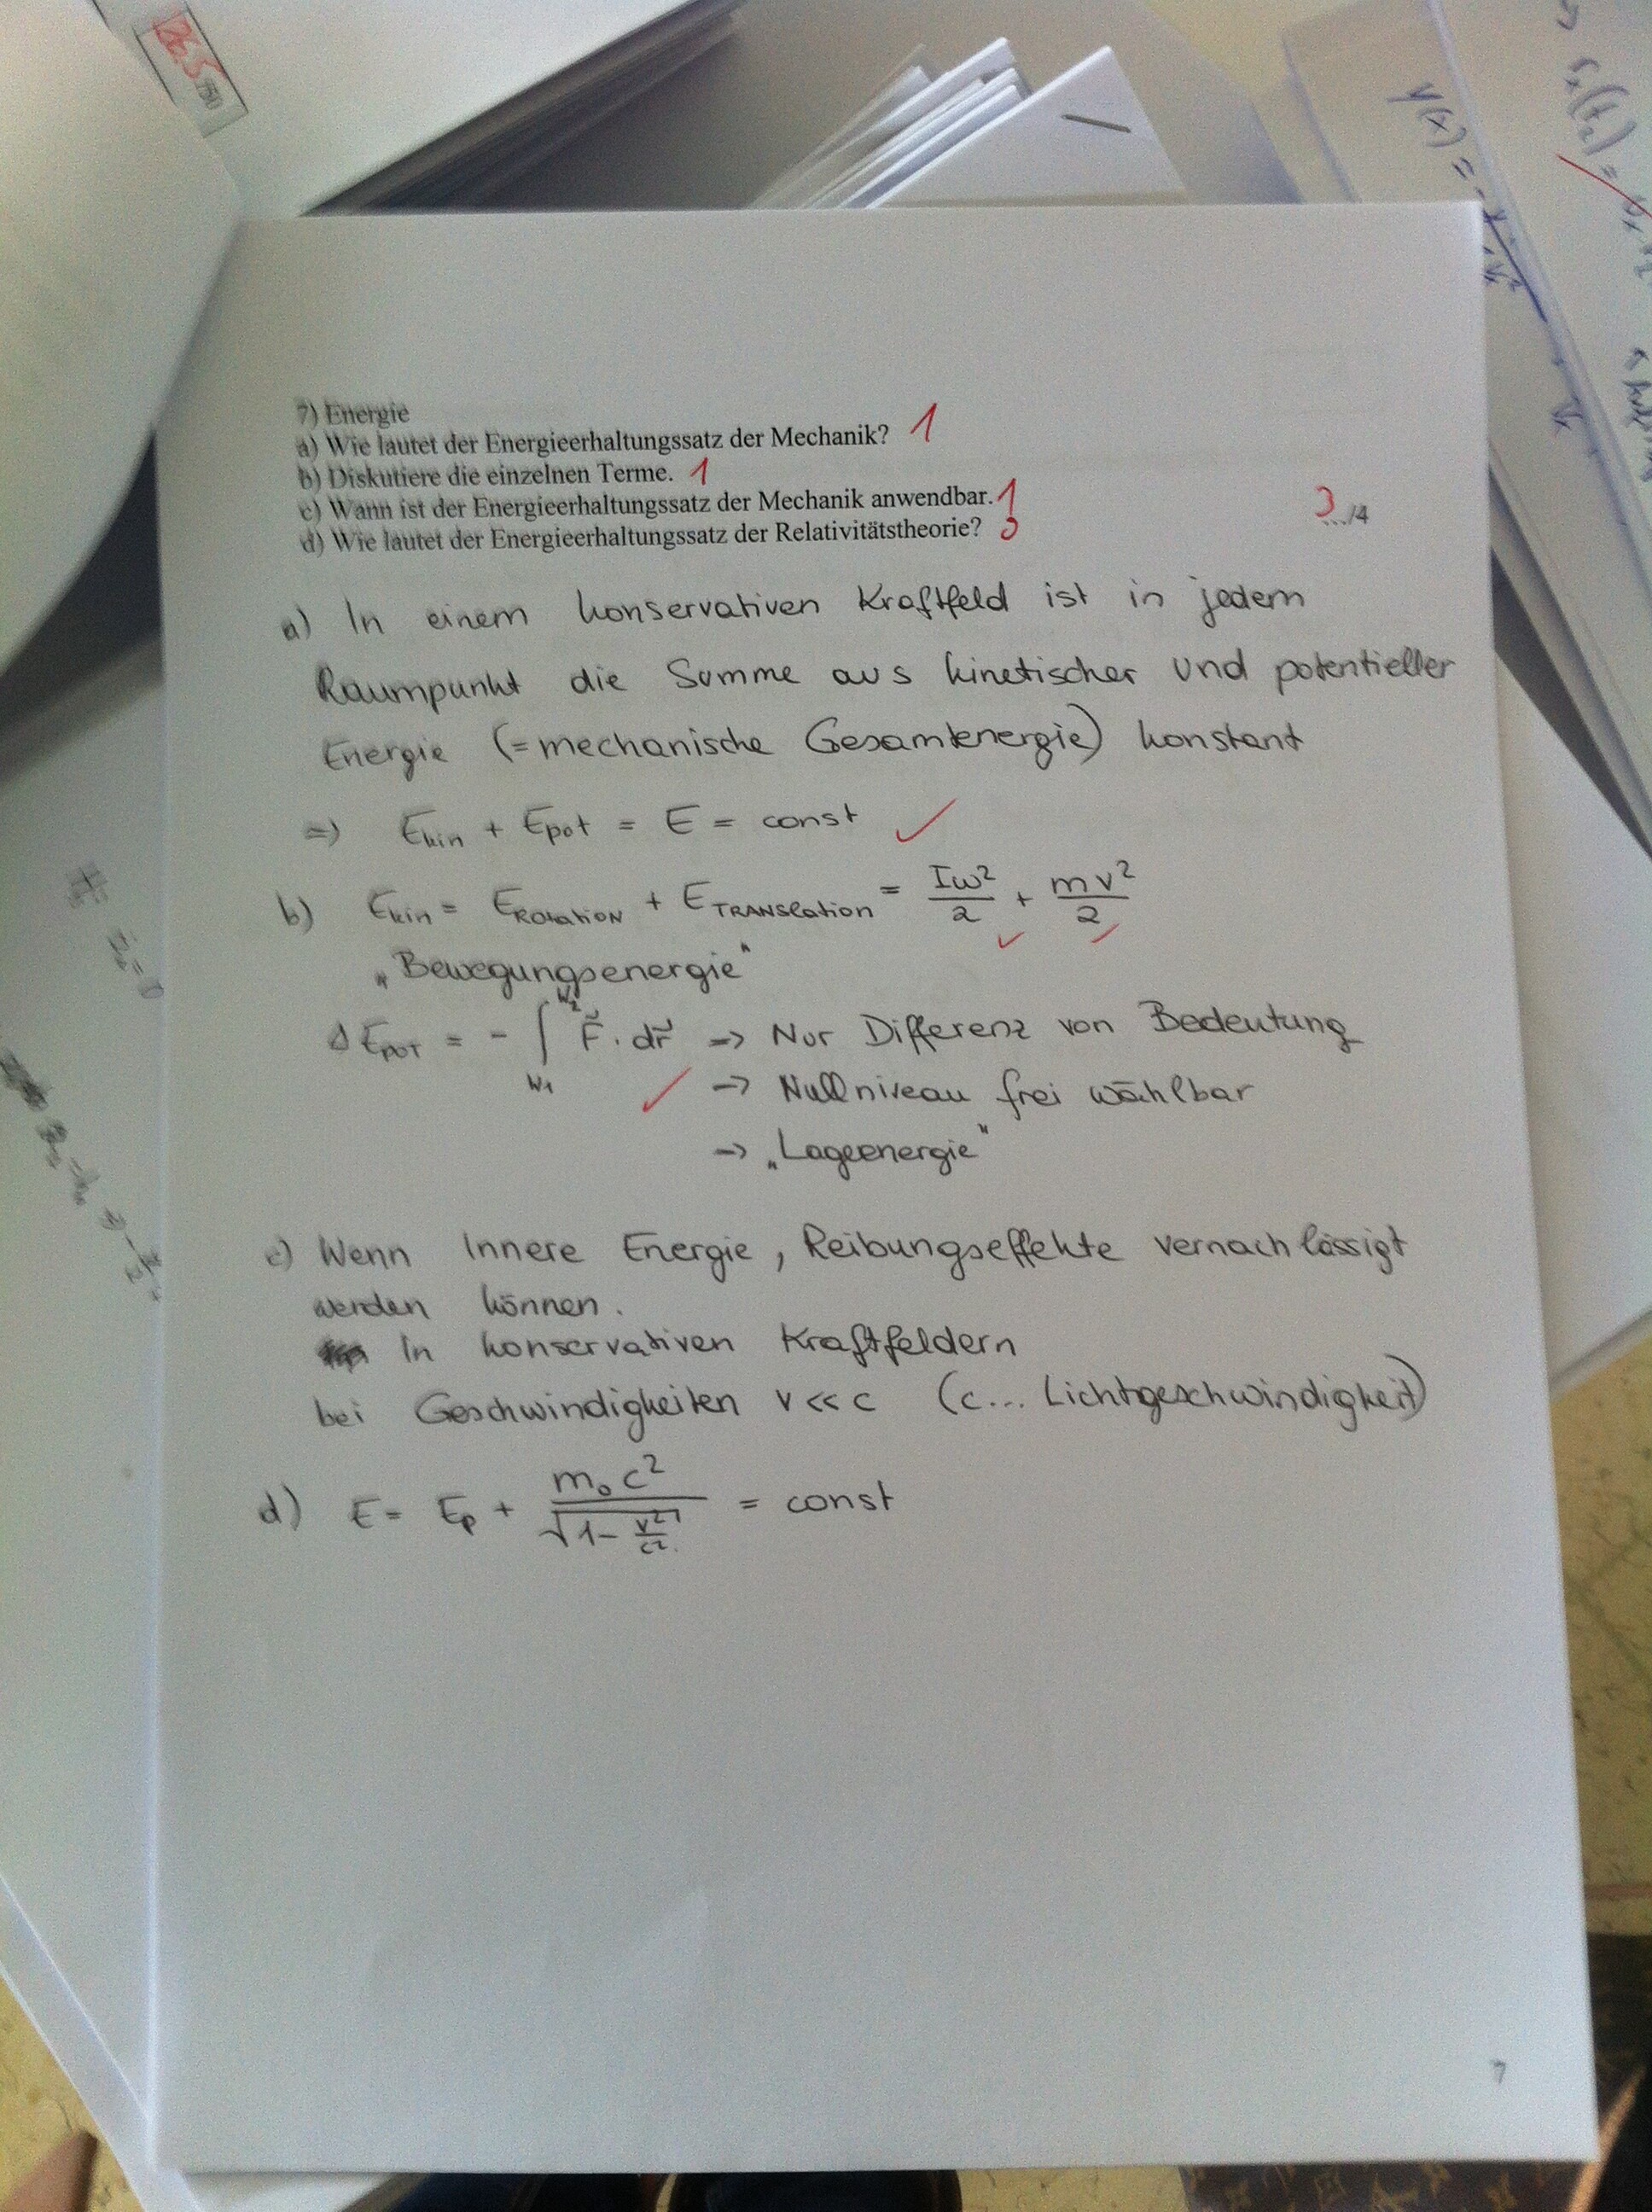 26,5
y(x) =
7) Energie
a) Wie lautet der Energieerhaltungssatz der Mechanik? 1
b) Diskutiere die einzelnen Terme. 1
c) Wann ist der Energieerhaltungssatz der Mechanik anwendbar. 1
d) Wie lautet der Energieerhaltungssatz der Relativitätstheorie? 0
3 .../4
a) In einem konservativen Kraftfeld ist in jedem
Raumpunkt die Summe aus kinetischer und potentieller
Energie (= mechanische Gesamtenergie) konstant
=> Ekin + Epot = E = const ✓
b) Ekin = EROtatION + ETRANSlation = Iω²/2 + mv²/2
"Bewegungsenergie"
Δ EPOT = - ∫ F⃗ · dr⃗ -> Nur Differenz von Bedeutung
-> Nullniveau frei wählbar
-> "Lageenergie"
c) Wenn Innere Energie, Reibungseffekte vernachlässigt
werden können.
In konservativen Kraftfeldern
bei Geschwindigkeiten v << c (c... Lichtgeschwindigkeit)
d) E = Ep + m₀c²/√(1 - v²/c²) = const
7